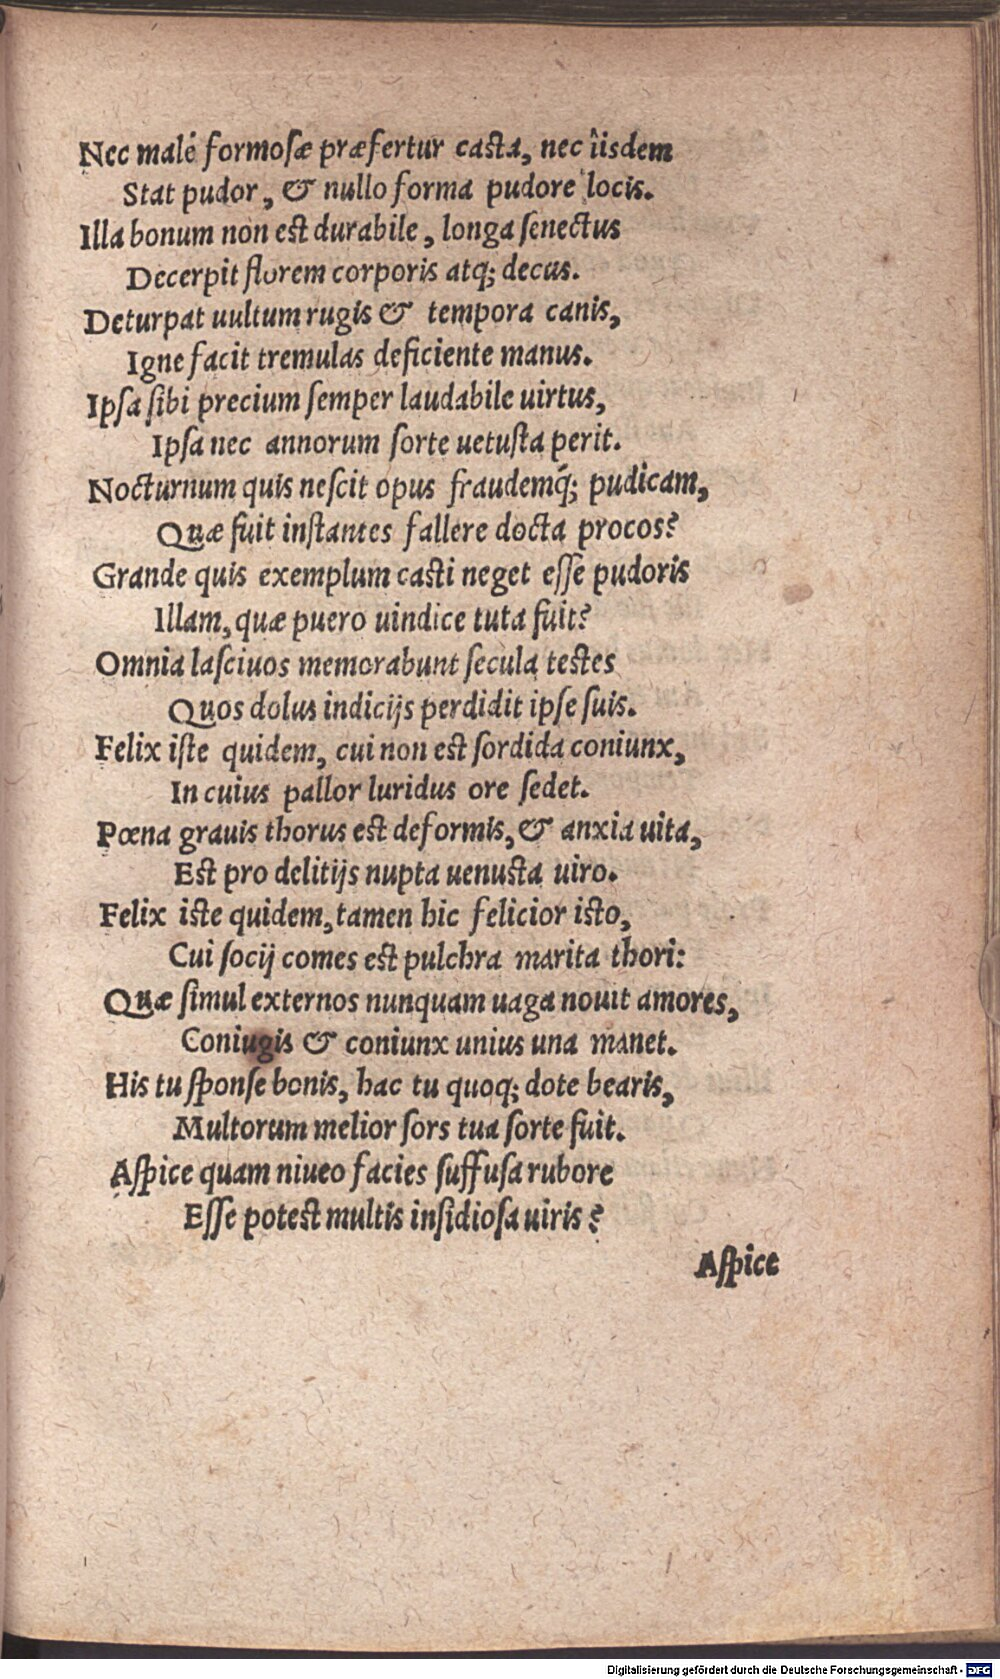 Nec malè formosæ præfertur casta, nec ijsdem
Stat pudor, & nullo forma pudore locis.
Illa bonum non est durabile, longa ſenectus
Decerpit florem corporis atq; decus.
Deturpat uultum rugis & tempora canis,
Igne facit tremulas deficiente manus.
Ipſa ſibi precium ſemper laudabile uirtus,
Ipſa nec annorum ſorte uetuſta perit.
Nocturnum quis neſcit opus fraudemq́; pudicam,
Quæ fuit inſtantes fallere docta procos?
Grande quis exemplum caſti neget eſſe pudoris
Illam, quæ puero uindice tuta fuit?
Omnia laſciuos memorabunt ſecula testes
Quos dolus indicijs perdidit ipſe ſuis.
Felix iſte quidem, cui non est ſordida coniunx,
In cuius pallor luridus ore ſedet.
Pœna grauis thorus est deformis, & anxia uita,
Est pro delitijs nupta uenusta uiro.
Felix iste quidem, tamen hic felicior isto,
Cui ſocij comes est pulchra marita thori:
Quæ ſimul externos nunquam uaga nouit amores,
Coniugis & coniunx unius una manet.
His tu ſponſe bonis, hac tu quoq; dote bearis,
Multorum melior ſors tua ſorte fuit.
Aſpice quam niueo facies ſuffuſa rubore
Eſſe potest multis inſidioſa uiris?
Aſpice
Digitalisierung gefördert durch die Deutsche Forschungsgemeinschaft - DFG